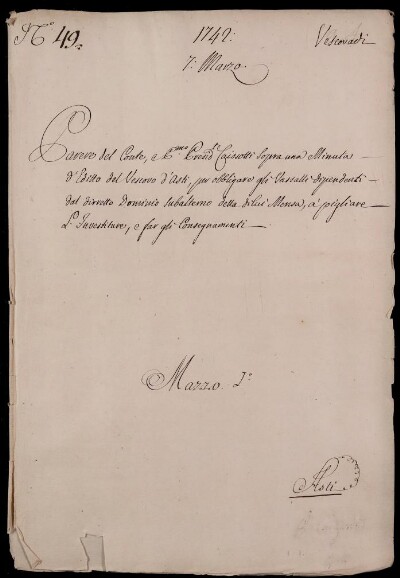 N.° 49.
1742:
Vescovadi
7: Marzo.
Parere del Conte, e P.mo Presid.e Caissotti sopra una Minuta
d'Editto del Vescovo d'Asti, per obbligare gli Vassalli dipendenti
dal diretto Dominio subalterno della di lui Mensa, a' pigliare
L'Investiture, e far gli Consegnamenti
Mazzo 3.°
Asti